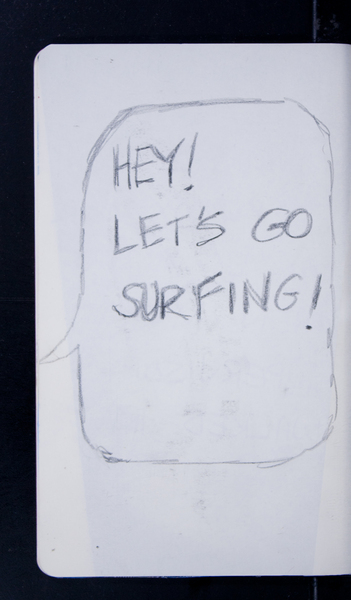 HEY!
LET'S GO
SURFING!